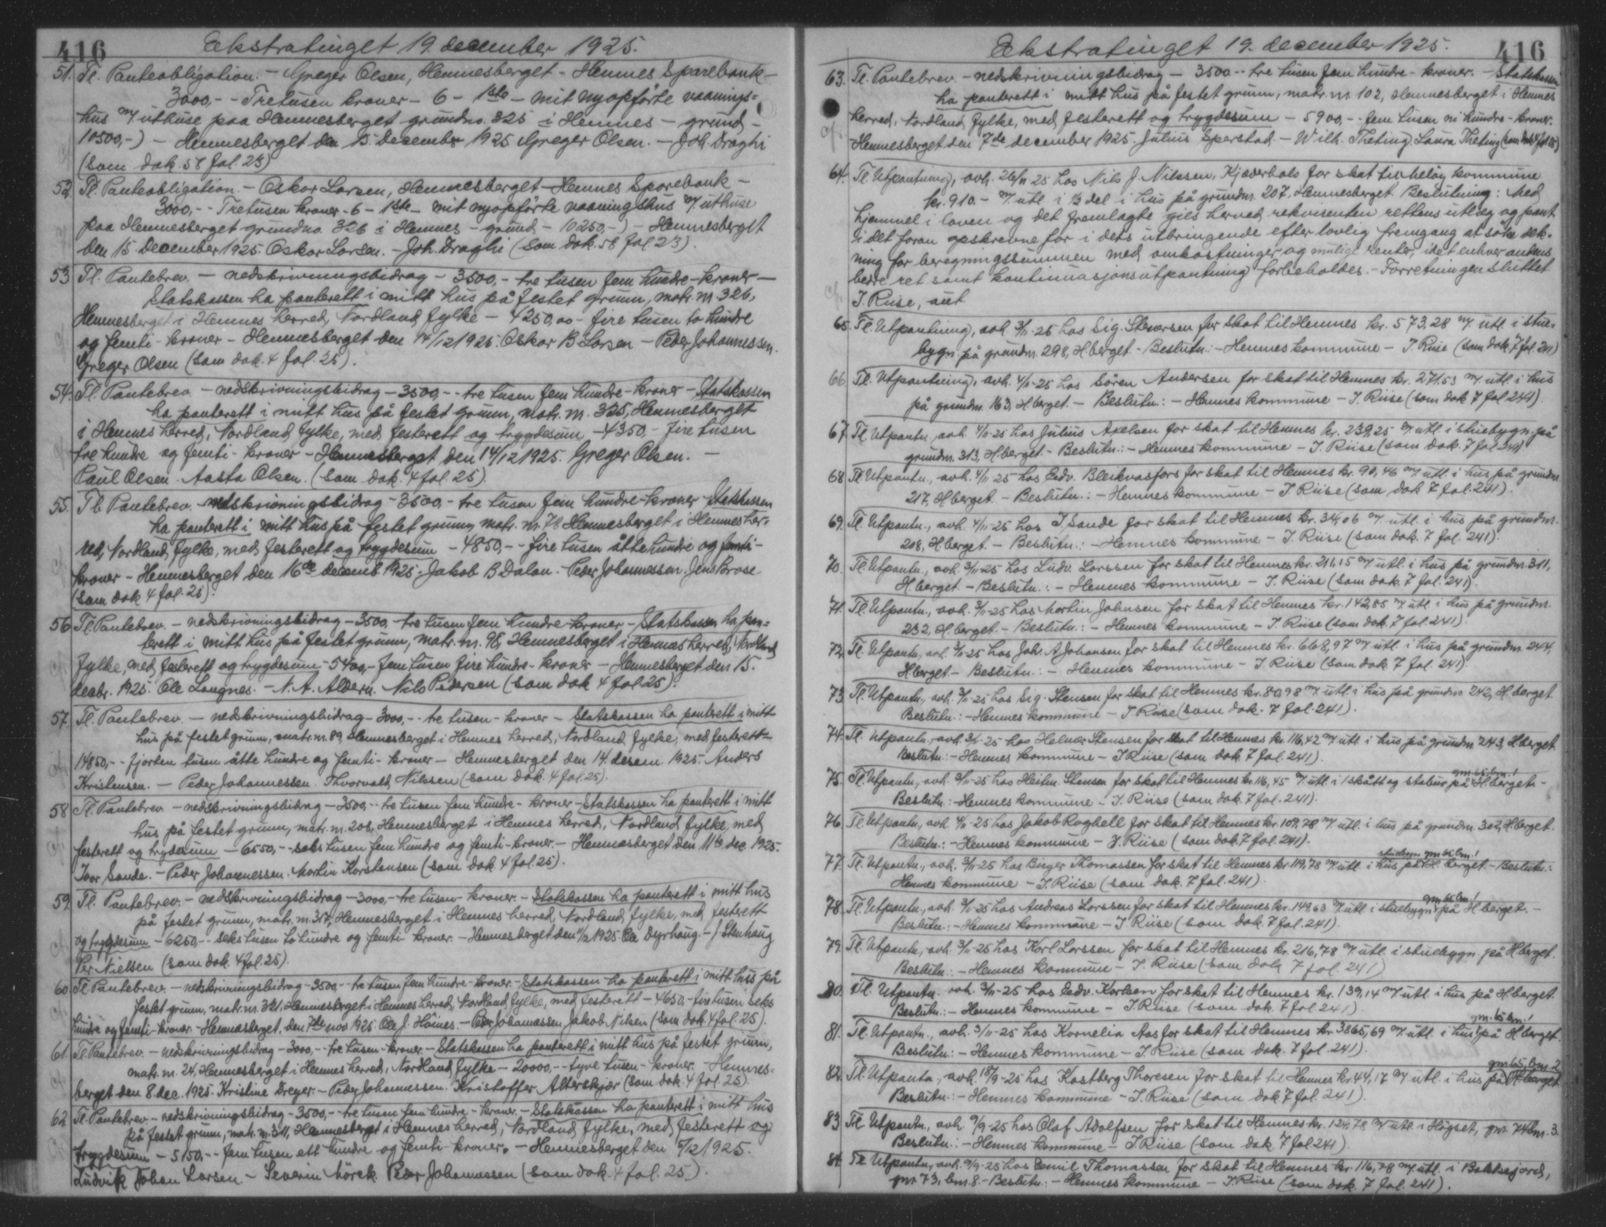 416 Ekstratinget 19. december 1925.
51. Tl. Panteobligation. - Greger Olsen, Hemnesberget - Hemnes Sparebank -
3000,- - Tretusen kroner - 6 - 1ste - mit nyopførte vaanings=
hus m/ uthuse paa Hemnesberget grundno. 325 i Hemnes - grund -
10500,-) - Hemnesberget den 15 December 1925 Greger Olsen. - Joh. Draghi
(som dok 57 fol 23)
52. Tl. Panteobligation. - Oskar Larsen, Hemnesberget - Hemnes Sparebank -
3000,- - Tretusen kroner - 6 - 1ste - mit nyopførte vaaningshus m/ uthuse
paa Hemnesberget grundno 326 i Hemnes - grund - 10250,-) - Hemnesberget
den 15 December 1925. Oskar Larsen. - Joh. Draghi (som dok. 58 fol 23).
53 Tl. Pantebrev. - nedskrivningsbidrag - 3500,- tre tusen fem hundre - kroner -
Statskassen ha panterett i mitt hus på festet grunn, matr. nr. 326,
Hemnesberget i Hemnes herred, Nordland fylke - 4250,00 - fire tusen to hundre
og femti - kroner - Hemnesberget den 14/12 1925. Oskar B Larsen - Peder Johannessen.
Greger Olsen (som dok. 4 fol. 25).
54. Tl. Pantebrev - nedskrivningsbidrag - 3500,- - tre tusen fem hundre - kroner - Statskassen
ha panterett i mitt hus på festet grunn, matr. nr. 325, Hemnesberget
i Hemnes herred, Nordland fylke, med festerett og trygdesum - 4350,- fire tusen
tre hundre og femti - kroner - Hemnesberget den 14/12 1925. Greger Olsen. -
Paul Olsen. Aasta Olsen. (som dok. 4 fol. 25)
55. Tl. Pantebrev. - nedskrivningsbidrag - 3500,- tre tusen fem hundre - kroner - Statskassen
ha panterett i mitt hus på festet grunn, matr. nr. Hemnesberget i Hemnes her-
red, Nordland fylke, med festerett og trygdesum - 4850,- - fire tusen åtte hundre og femti -
kroner - Hemnesberget den 16de decemb 1925. Jakob B Dalen. Peder Johannessen
(som dok 4 fol. 25)
56 Tl. Pantebrev. - nedskrivningsbidrag - 3500,- tre tusen fem hundre - kroner - Statskassen ha pan=
terett i mitt hus på festet grunn, matr. nr. 98, Hemnesberget i Hemnes herred, Nordland
fylke, med festerett og trygdesum - 5400,- fem tusen fire hundre - kroner - Hemnesberget den 15.
decbr. 1925. Ole Langnes. - N. A. Nils Pedersen (som dok 4 fol 25).
57. Tl. Pantebrev. - nedskrivningsbidrag - 3000,- - tre tusen - kroner - Statskassen ha panterett i mitt
hus på festet grunn, matr. nr. 89, Hemnesberget i Hemnes herred, Nordland fylke, med festerett -
14850,- - fjorten tusen åtte hundre og femti - kroner - Hemnesberget den 14 desem. 1925. Anders
Kristensen. - Peder Johannessen Thorvald Nilssen (som dok. 4 fol. 25).
58 Tl. Pantebrev - nedskrivningsbidrag - 3500,- - tre tusen fem hundre - kroner - Statskassen ha panterett i mitt
hus på festet grunn, matr. nr. 208, Hemnesberget i Hemnes herred, Nordland fylke, med
festerett og trygdesum - 6550,- - seks tusen fem hundre og femti - kroner. - Hemnesberget den 11te dec. 1925.
Ivar Sande. - Peder Johannessen. Martin Karstensen (som dok. 4 fol 25).
59. Tl. Pantebrev. - nedskrivningsbidrag - 3000,- tre tusen - kroner. - Statskassen ha panterett i mitt hus
på festet grunn, matr. nr. 317, Hemnesberget i Hemnes herred, Nordland fylke, med festerett
og trygdesum - 6250,- - seks tusen to hundre og femti kroner. - Hemnesberget den 1925 Ole Dyrhaug -
Per Nielsen (som dok. 4 fol. 25).
60. Tl. Pantebrev. - nedskrivningsbidrag - 3500,- - tre tusen fem hundre - kroner - Statskassen ha panterett i mitt hus på
festet grunn, matr. nr. 321, Hemnesberget i Hemnes herred, Nordland fylke, med festerett - 4650,- fire tusen seks
hundre og femti - kroner - Hemnesberget, den 7de nov 1925. Ole J. Høines. - Peder Johannessen Jakob Nilsen (som dok. 4 fol. 25).
61. Tl. Pantebrev. - nedskrivningsbidrag - 3000,- - tre tusen - kroner - Statskassen ha panterett i mitt hus på festet grunn,
matr. nr. 24, Hemnesberget i Hemnes herred, Nordland fylke - 20000,- - tyve tusen - kroner. Hemnes-
berget den 8 dec. 1925. Kristine Dreyer. - Peder Johannessen. Kristoffer Alterskjær (som dok. 4 fol. 25)
62. Tl. Pantebrev - nedskrivningsbidrag - 3500,- - tre tusen fem hundre - kroner. - Statskassen ha panterett i mitt hus
på festet grunn, matr. nr. 311, Hemnesberget i Hemnes herred, Nordland fylke, med festerett og
trygdesum - 5150,- - fem tusen ett hundre og femti - kroner. - Hemnesberget den 1925.
Ludvik Johan Larsen - Severin Peder Johannessen (som dok. 4 fol. 25).
Ekstratinget 19. december 1925. 416
63. Tl. Pantebrev. - nedskrivningsbidrag - 3500,- - tre tusen fem hundre - kroner. - Statskassen
ha panterett i mitt hus på festet grunn, matr. nr. 102, Hemnesberget i Hemnes
herred, Nordland fylke, med festerett og trygdesum - 5900,- - fem tusen ni hundre - kroner.
Hemnesberget den 7de december 1925. Julius Sperstad - Wilh. Theting. Laura Theting (som dok 4 fol 25)
64. Tl. Utpantning, avh. 26/11 25 hos Nils J. Nilssen, Kjæderbots for skat til Meløy kommune
kr. 910.- m/ utl. i B del i hus på grundnr. 207. Hemnesberget Beslutning: Med
hjemmel i loven og det fremlagte gis herved rekvirenten rettens utlæg og pant
i det foran opskrevne for i dets utbringende efter lovlig fremgang at søke dæk-
ning for beregningssummen med omkostninger og mulige renter, idet enhver andens
bedre ret samt kontinuasjonsutpantning forbeholdes. - Forretningen sluttet
J. Riise, aut
65. Tl. Utpantning, avh. 3/11-25 hos Sig. Stenersen for skat til Hemnes kr. 573.28 m/ utl. i stue-
bygn. på grundnr. 298, H.berget - Beslutn: - Hemnes kommune - J. Riise (som dok. 7 fol. 241)
66. Tl. Utpantning, avh. 4/11-25 hos Søren Andersen for skat til Hemnes kr. 271.53 m/ utl. i hus
på grundnr. 163 H.berget. - Beslutn.: - Hemnes kommune - J. Riise (som dok 7 fol 241).
67. Tl. Utpantn., avh. 4/11-25 hos Julius Axelsen for skat til Hemnes kr. 239,25 m/ utl. i stuebygn. på
grundnr. 313, H.berget - Beslutn: - Hemnes kommune - J. Riise (som dok. 7 fol 241)
68 Tl. Utpantn., avh. 4/11-25 hos Edv. Bleikvasfors for skat til Hemnes kr. 98,46 m/ utl. i hus på grundnr.
217, H.berget. - Beslutn.: - Hemnes kommune - J. Riise (som dok 7 fol. 241).
69. Tl. Utpantn., avh. 4/11-25 hos I. Sande for skat til Hemnes kr. 34,06 m/ utl. i hus på grundnr.
208, H.berget. - Beslutn.: - Hemnes kommune - J. Riise (som dok. 7 fol. 241).
70. Tl. Utpantn., avh. 3/11-25 hos Ludv. Larssen for skat til Hemnes kr. 216,15 m/ utl. i hus på grundnr. 311,
H.berget - Beslutn.: - Hemnes kommune - J. Riise (som dok. 7 fol. 241).
71. Tl. Utpantn., avh. 3/11-25 hos Martin Johnsen for skat til Hemnes kr. 142,85 m/ utl. i hus på grundnr.
232, H.berget. - Beslutn.: - Hemnes kommune - J. Riise (som dok. 7 fol. 241).
72. Tl. Utpantn., avh. 3/11-25 hos Joh. A Johansen for skat til Hemnes kr. 668,97 m/ utl. i hus på grundnr. 244,
H.berget - Beslutn.: - Hemnes kommune - J. Riise (som dok. 7 fol. 241).
73. Tl. Utpantn., avh. 3/11-25 hos Sig. Stensen for skat til Hemnes kr. 80,98 m/ utl. i hus på grundnr. 242, H.berget.
Beslutn.: - Hemnes kommune - J Riise (som dok. 7 fol. 241).
74. Tl. Utpantn., avh. 3/11-25 hos Helmer Stensen for skat til Hemnes kr. 116,42 m/ utl. i hus på grundnr 243 H.berget
Beslutn.: - Hemnes kommune - J. Riise (som dok. 7 fol. 241).
75. Tl. Utpantn., avh. 3/11-25 hos Halstn. Stensen for skat til Hemnes kr. 116,45 m/ utl. i 1 skåt og stabur på H.berget -
Beslutn.: - Hemnes kommune - J. Riise (som dok. 7 fol. 241).
76. Tl. Utpantn., avh. 4/11-25 hos Jakob Roghell for skat til Hemnes kr. 109,78 m/ utl. i hus på grundnr. 302, H.berget.
Beslutn.: - Hemnes kommune - J. Riise (som dok 7 fol. 241).
77. Tl. Utpantn., avh. 3/11-25 hos Birger Thomassen for skat til Hemnes kr. 119,78 m/ utl. i hus på H.berget - Beslutn.:
Hemnes kommune - J. Riise (som dok. 7 fol. 241)
78. Tl. Utpantn., avh. 3/11-25 hos Andreas Larssen for skat til Hemnes kr. 149,63 m/ utl. i stuebygn. på H.berget. -
Beslutn.: - Hemnes kommune - J. Riise (som dok. 7 fol. 241).
79. Tl. Utpantn., avh. 3/11-25 hos Karl Larssen for skat til Hemnes kr. 216,78 m/ utl. i stuebygn. på H.berget.
Beslutn.: - Hemnes kommune - J. Riise (som dok 7 fol 241)
80. Tl. Utpantn., avh. 3/11-25 hos Edv. Karlsen for skat til Hemnes kr. 139,14 m/ utl. i hus på H.berget.
Beslutn.: - Hemnes kommune - J. Riise (som dok 7 fol. 241)
81. Tl. Utpantn., avh. 3/11-25 hos Kornelia Aas for skat til Hemnes kr. 3865,69 m/ utl. i hus på H.berget.
Beslutn.: - Hemnes kommune - J. Riise (som dok. 7 fol. 241).
82. Tl. Utpantn., avh. 18/9-25 hos Kastberg Thoresen for skat til Hemnes kr. 44,17 m/ utl. i hus på H.berget
Beslutn.: - Hemnes kommune - J. Riise (som dok. 7 fol. 241).
83 Tl. Utpantn., avh. 9/9-25 hos Olaf Adolfsen for skat til Hemnes kr. 124,78 m/ utl. i Høgset, gnr. 74 bnr. 3.
Beslutn.: - Hemnes kommune - J. Riise (som dok 7 fol 241)
84. Tl. Utpantn., avh. 9/9-25 hos Emil Thomassen for skat til Hemnes kr. 116,78 m/ utl. i
gnr. 73, bnr. 8. - Beslutn.: - Hemnes kommune - J. Riise (som dok. 7 fol. 241).